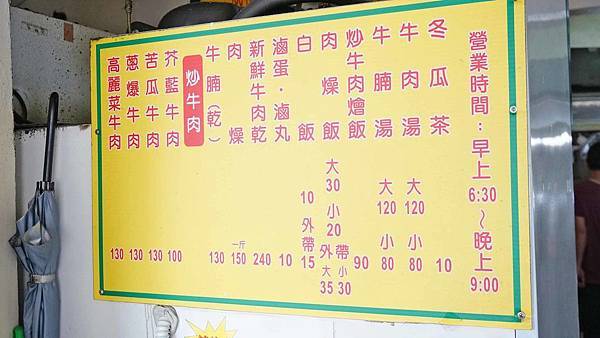 營業時間：早上6:30～晚上9:00
冬瓜茶 10
牛肉湯 大120 小80
牛腩湯 大120 小80
炒牛肉燴飯 90
肉燥飯 大30 小20 外帶 大35 小30
白飯 10 外帶15
滷蛋・滷丸 10
新鮮牛肉乾 240
肉燥 一斤150
牛腩（乾） 130
炒牛肉
芥藍牛肉 100
苦瓜牛肉 130
蔥爆牛肉 130
高麗菜牛肉 130